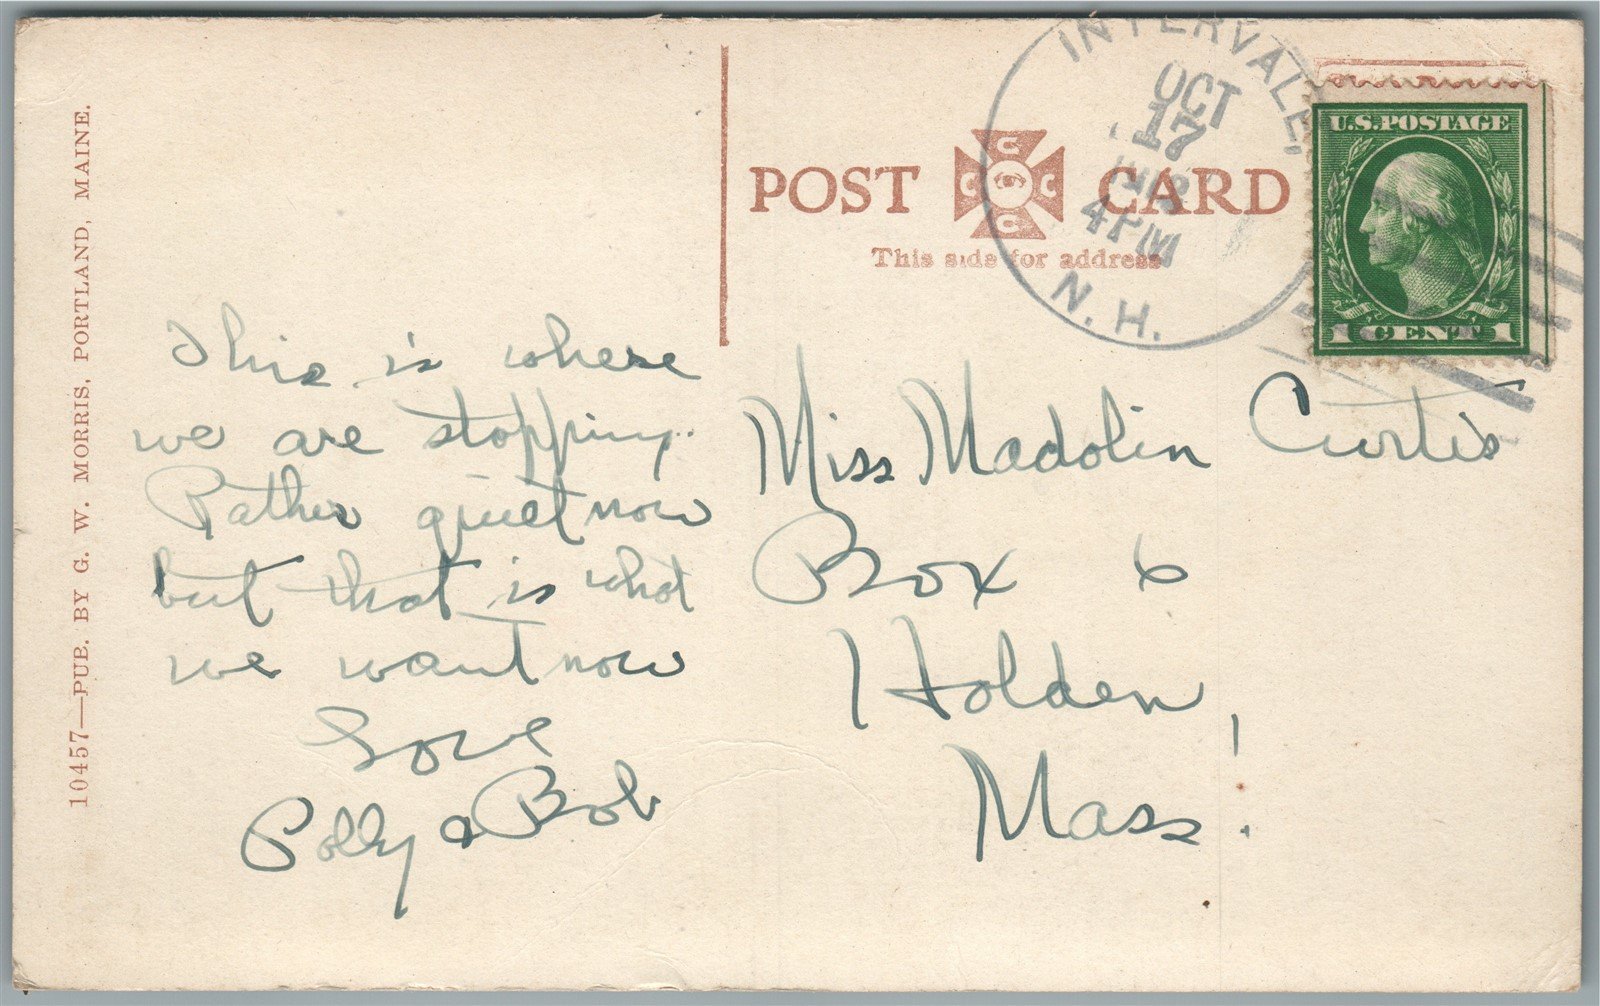 10457—PUB. BY G. W. MORRIS, PORTLAND, MAINE.
POST CARD
C C C C
This side for address
INTERVALE,
OCT
17
4 PM
N. H.
U.S. POSTAGE
1 CENT 1
This is where
we are stopping.
Rather quiet now
but that is what
we want now
Love
Polly & Bob
Miss Madolin Curtis
Box 6
Holden,
Mass!